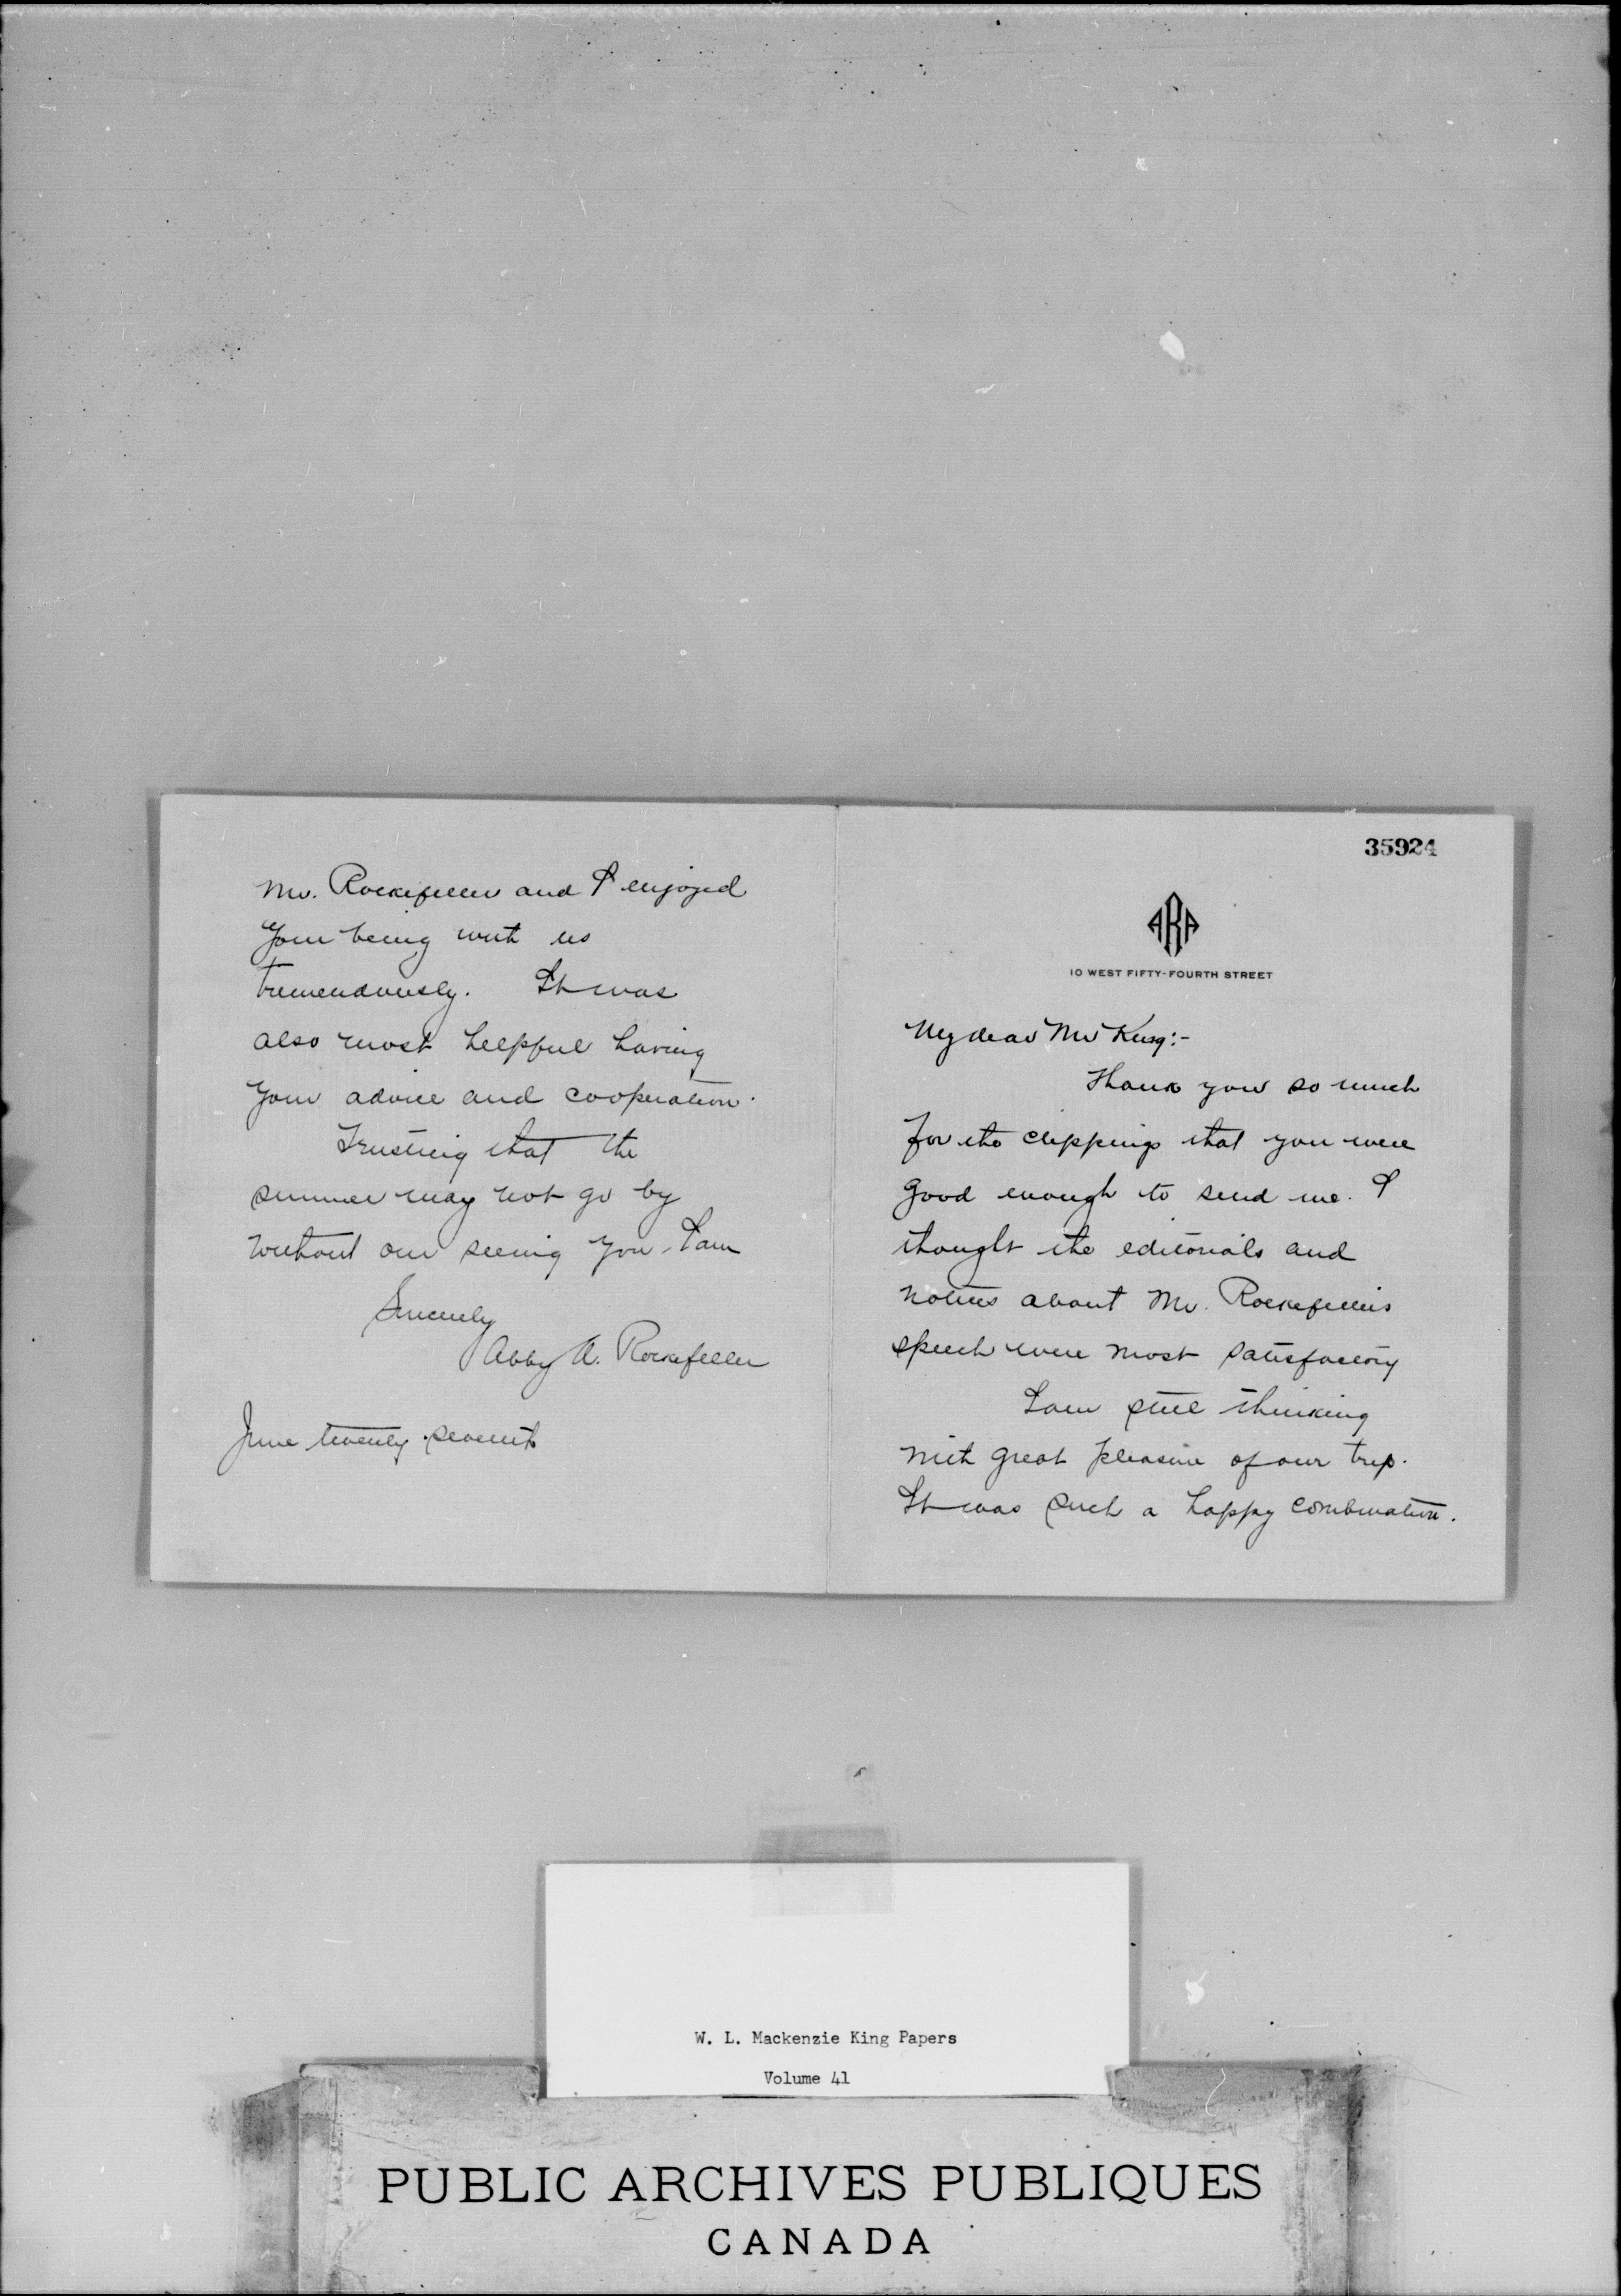 35924
ARA
10 WEST FIFTY-FOURTH STREET
My dear Mr King:-
Thank you so much
for the clippings that you were
good enough to send me. I
thought the editorials and
notices about Mr. Rockefeller's
speech were most satisfactory
I am still thinking
with great pleasure of our trip.
It was such a happy combination.
Mr. Rockefeller and I enjoyed
your being with us
tremendously. It was
also most helpful having
your advice and cooperation.
Trusting that the
summer may not go by
without our seeing you. I am
Sincerely
Abby A. Rockefeller
June twenty-seventh
W. L. Mackenzie King Papers
Volume 41
PUBLIC ARCHIVES PUBLIQUES
CANADA